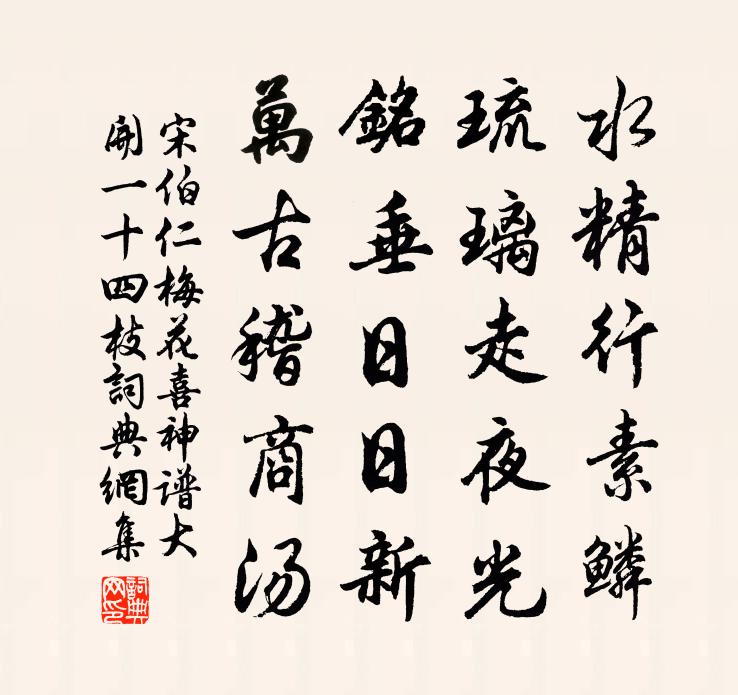 水精行素鱗
琉璃走夜光
銘垂日日新
萬古稽商汤
宋伯仁梅花喜神谱大
開一十四枝詞典網集
詞典
网印